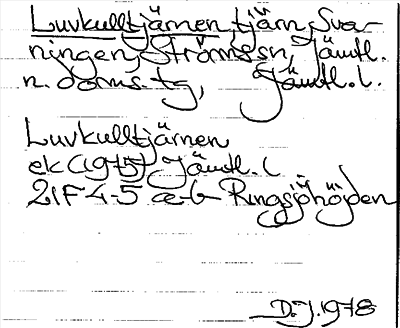 Luvkulltjärnen, tjärn, Sva-
ningen, Ströms sn, Jämtl.
n. doms. tg, Jämtl. l.
Luvkulltjärnen
ek (1975) Jämtl. l
21F 4-5 a-b Ringsjöhöjden
D.J. 1978